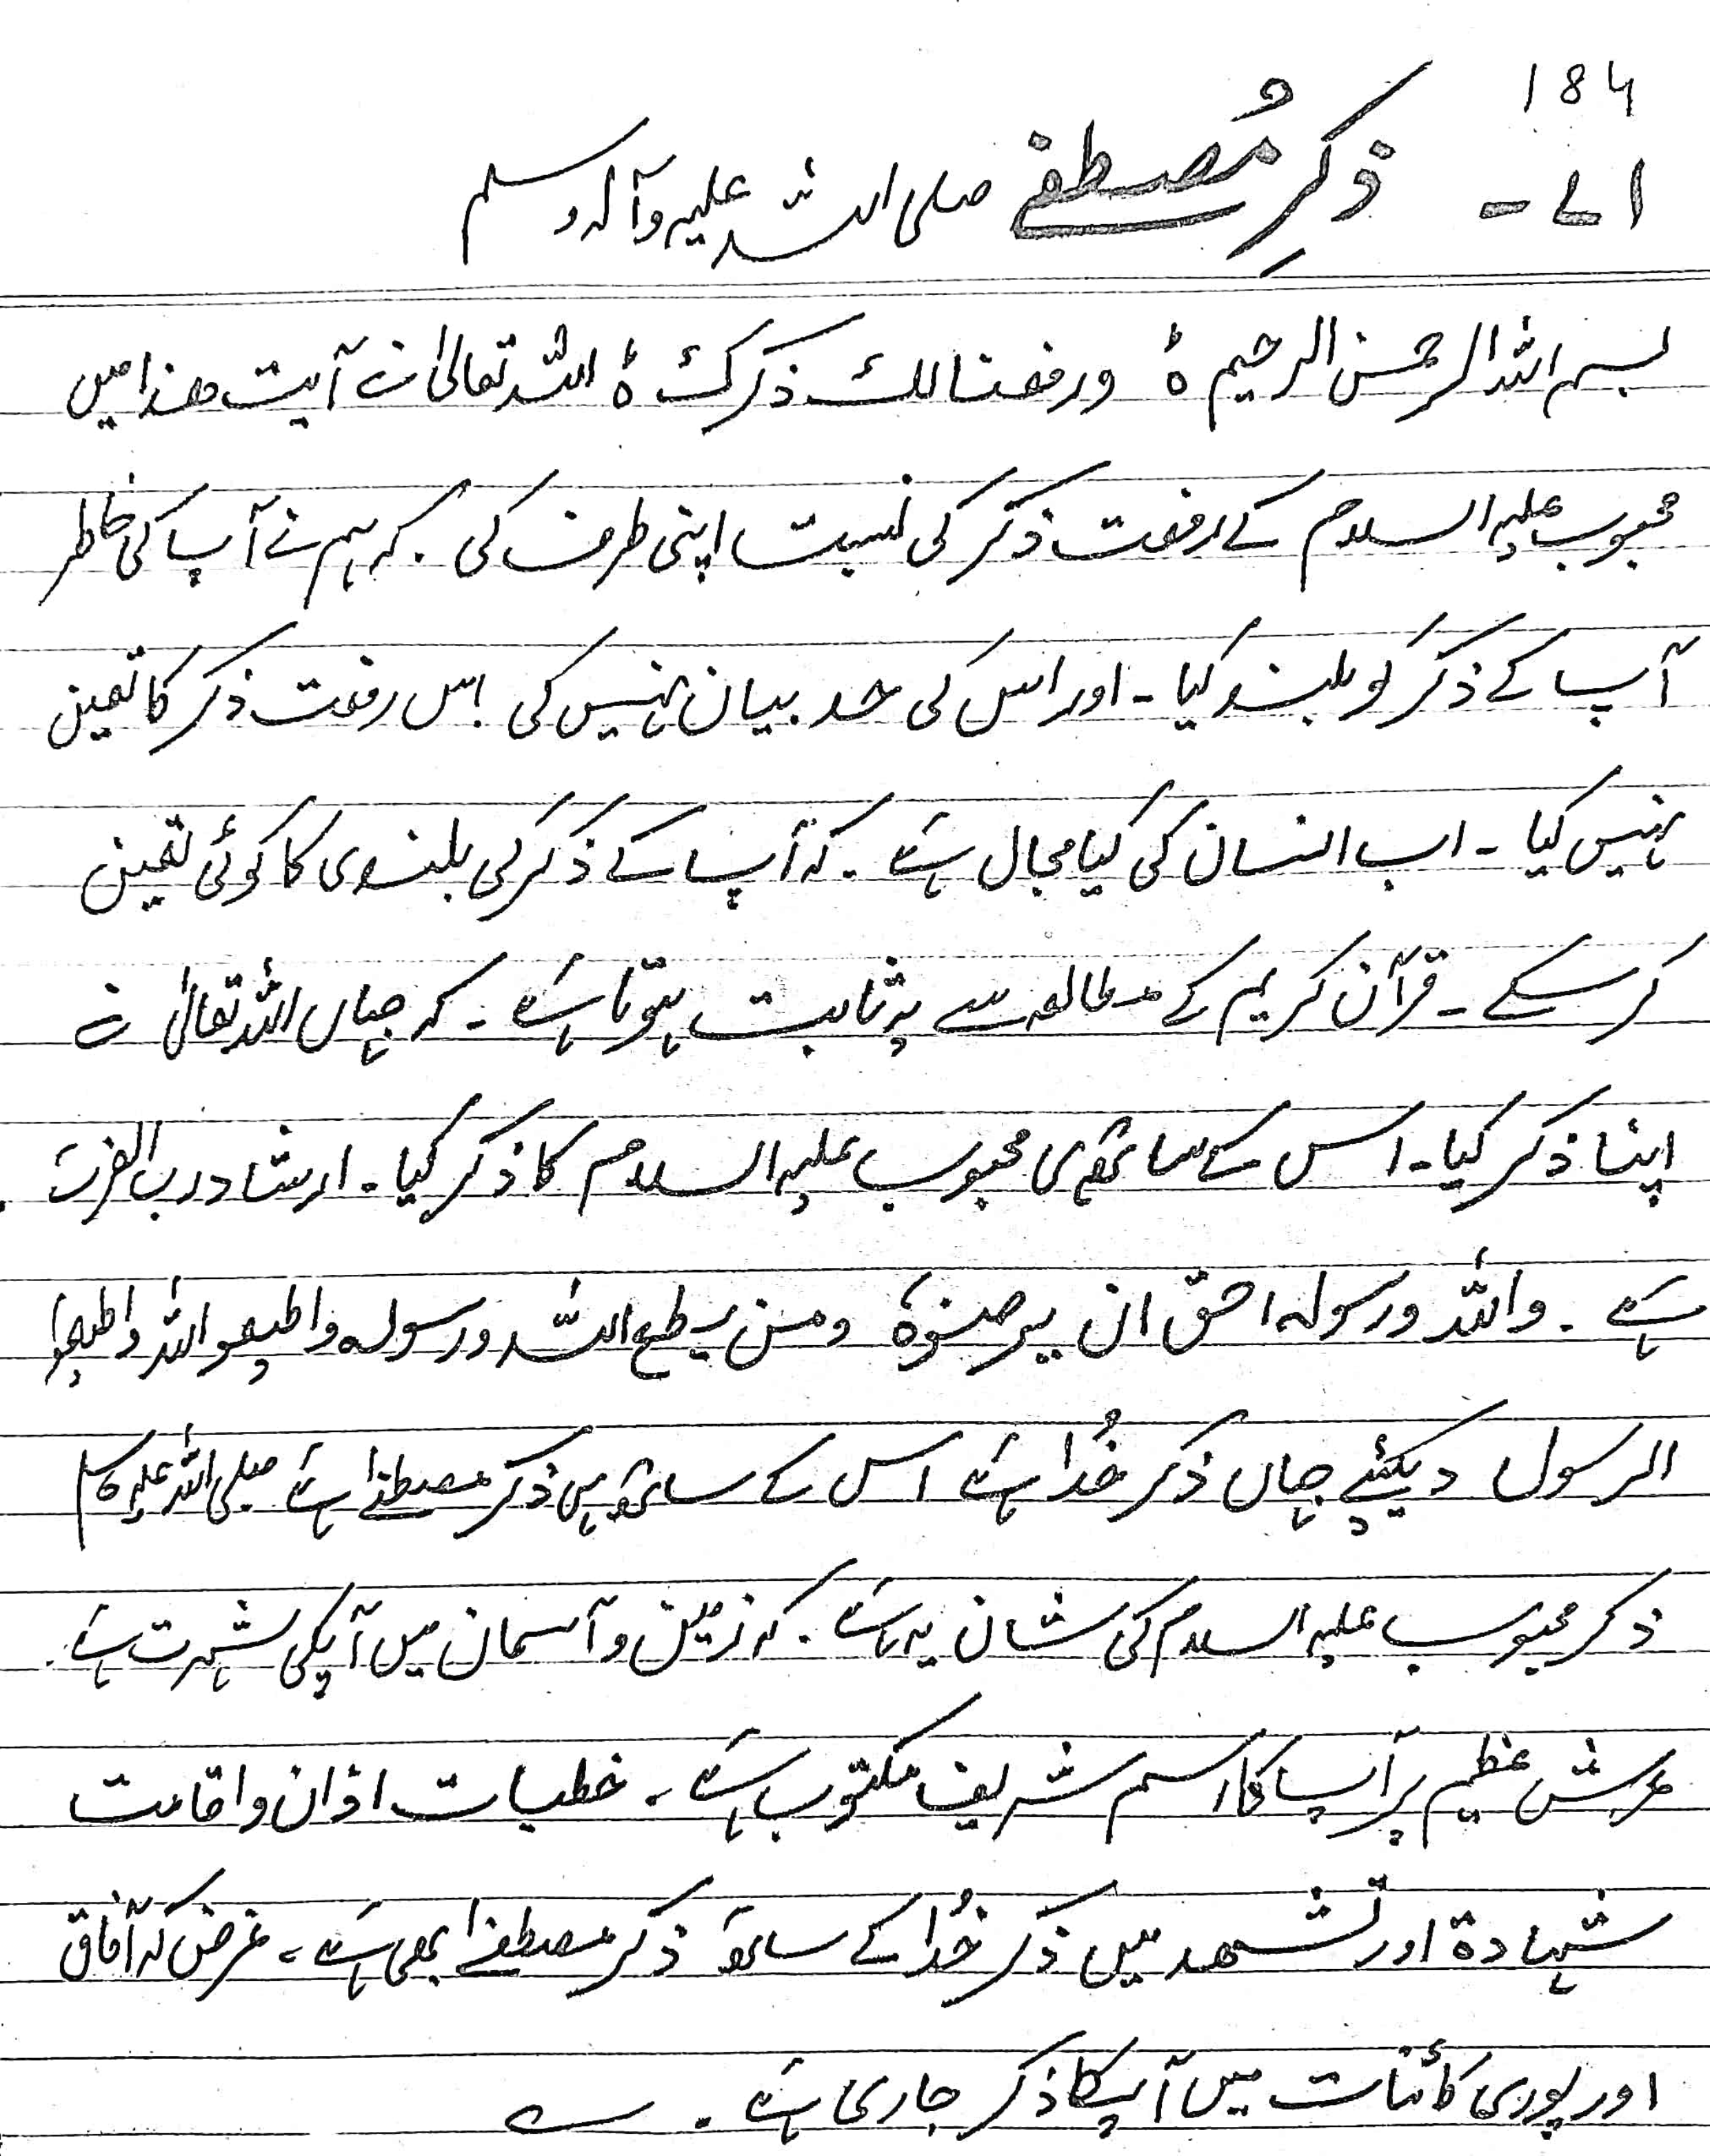 184
71- ذکرِ مُصطفےٰ صلی اللہ علیہ وآلہ وسلم
بسم اللہ الرحمن الرحیم ہ ورفعنا لک ذکرک ہ اللہ تعالیٰ نے آیت ھذا میں
محبوب علیہ السلام کے رفعت ذکر کی نسبت اپنی طرف کی . کہ ہم نے آپ کی خاطر
آپ کے ذکر کو بلند کیا - اور اس کی حد بیان نہیں کی اس رفعت ذکر کا تعین
نہیں کیا - اب انسان کی کیا مجال ہے . کہ آپ کے ذکر کی بلندی کا کوئی تعین
کر سکے - قرآن کریم کے مطالعہ سے یہ ثابت ہوتا ہے - کہ جہاں اللہ تعالیٰ نے
اپنا ذکر کیا - اس کے ساتھ ہی محبوب علیہ السلام کا ذکر کیا - ارشاد رب العزت
ہے . واللہ ورسولہ احق ان یرضوہ ومن یطع اللہ ورسولہ واطیعو اللہ واطیعوا
الرسول دیکھئے جہاں ذکر خُدا ہے اس کے ساتھ ہی ذکر مصطفےٰ ہے صلی اللہ علیہ وسلم
ذکر محبوب علیہ السلام کی شان یہ ہے . کہ زمین و آسمان میں آپکی شہرت ہے .
عرش عظیم پر آپ کا اسم شریف مکتوب ہے . خطبات اذان و اقامت
شہادۃ اور تشھد میں ذکر خُدا کے ساتھ ذکر مصطفےٰ بھی ہے . غرض کہ آفاق
اور پوری کائنات میں آپکا ذکر جاری ہے .